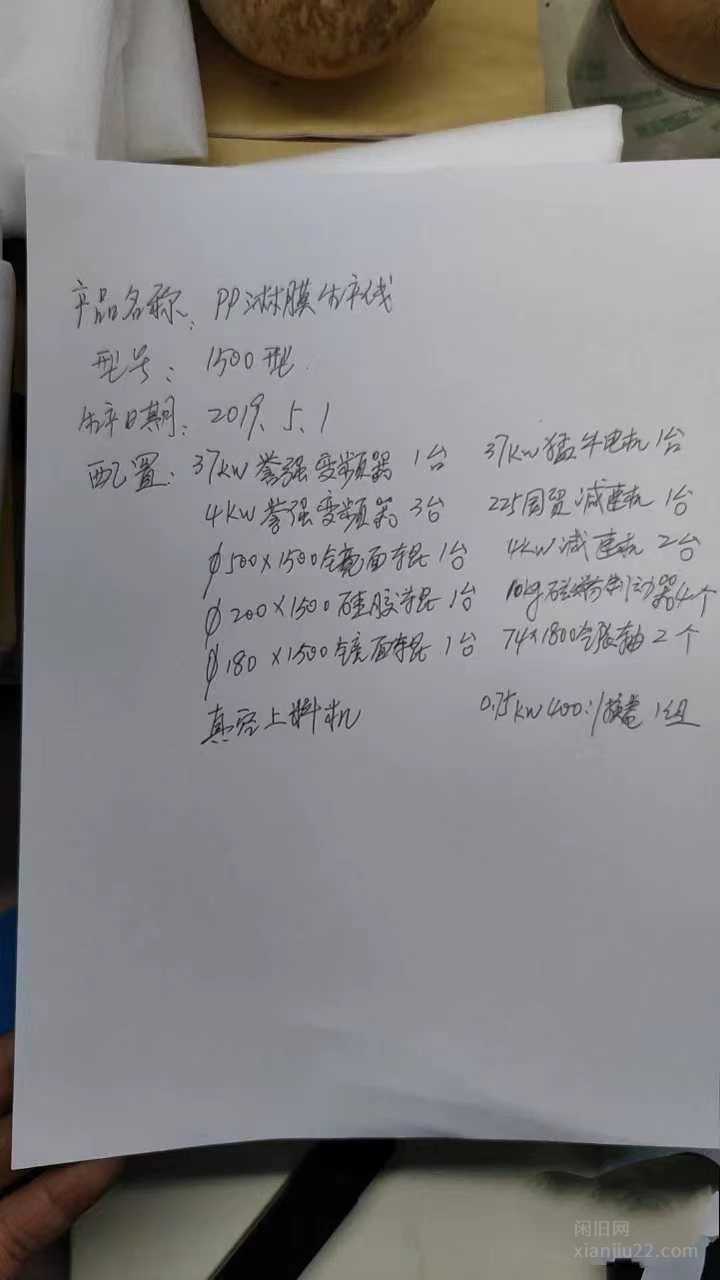 产品名称：PP淋膜生产线
型号：1500型
生产日期：2019.5.1
配置：37kw誉强变频器 1台 37kw猛牛电机1台
4kw誉强变频器3台 225国贸减速机1台
φ500×1500镜面辊1台 4kw减速机2台
φ200×1500硅胶辊1台 10kg磁粉制动器4个
φ180×1500镜面辊1台 74×1800气胀轴2个
真空上料机 0.75kw400:1 1组
闲旧网
xianjiu22.com